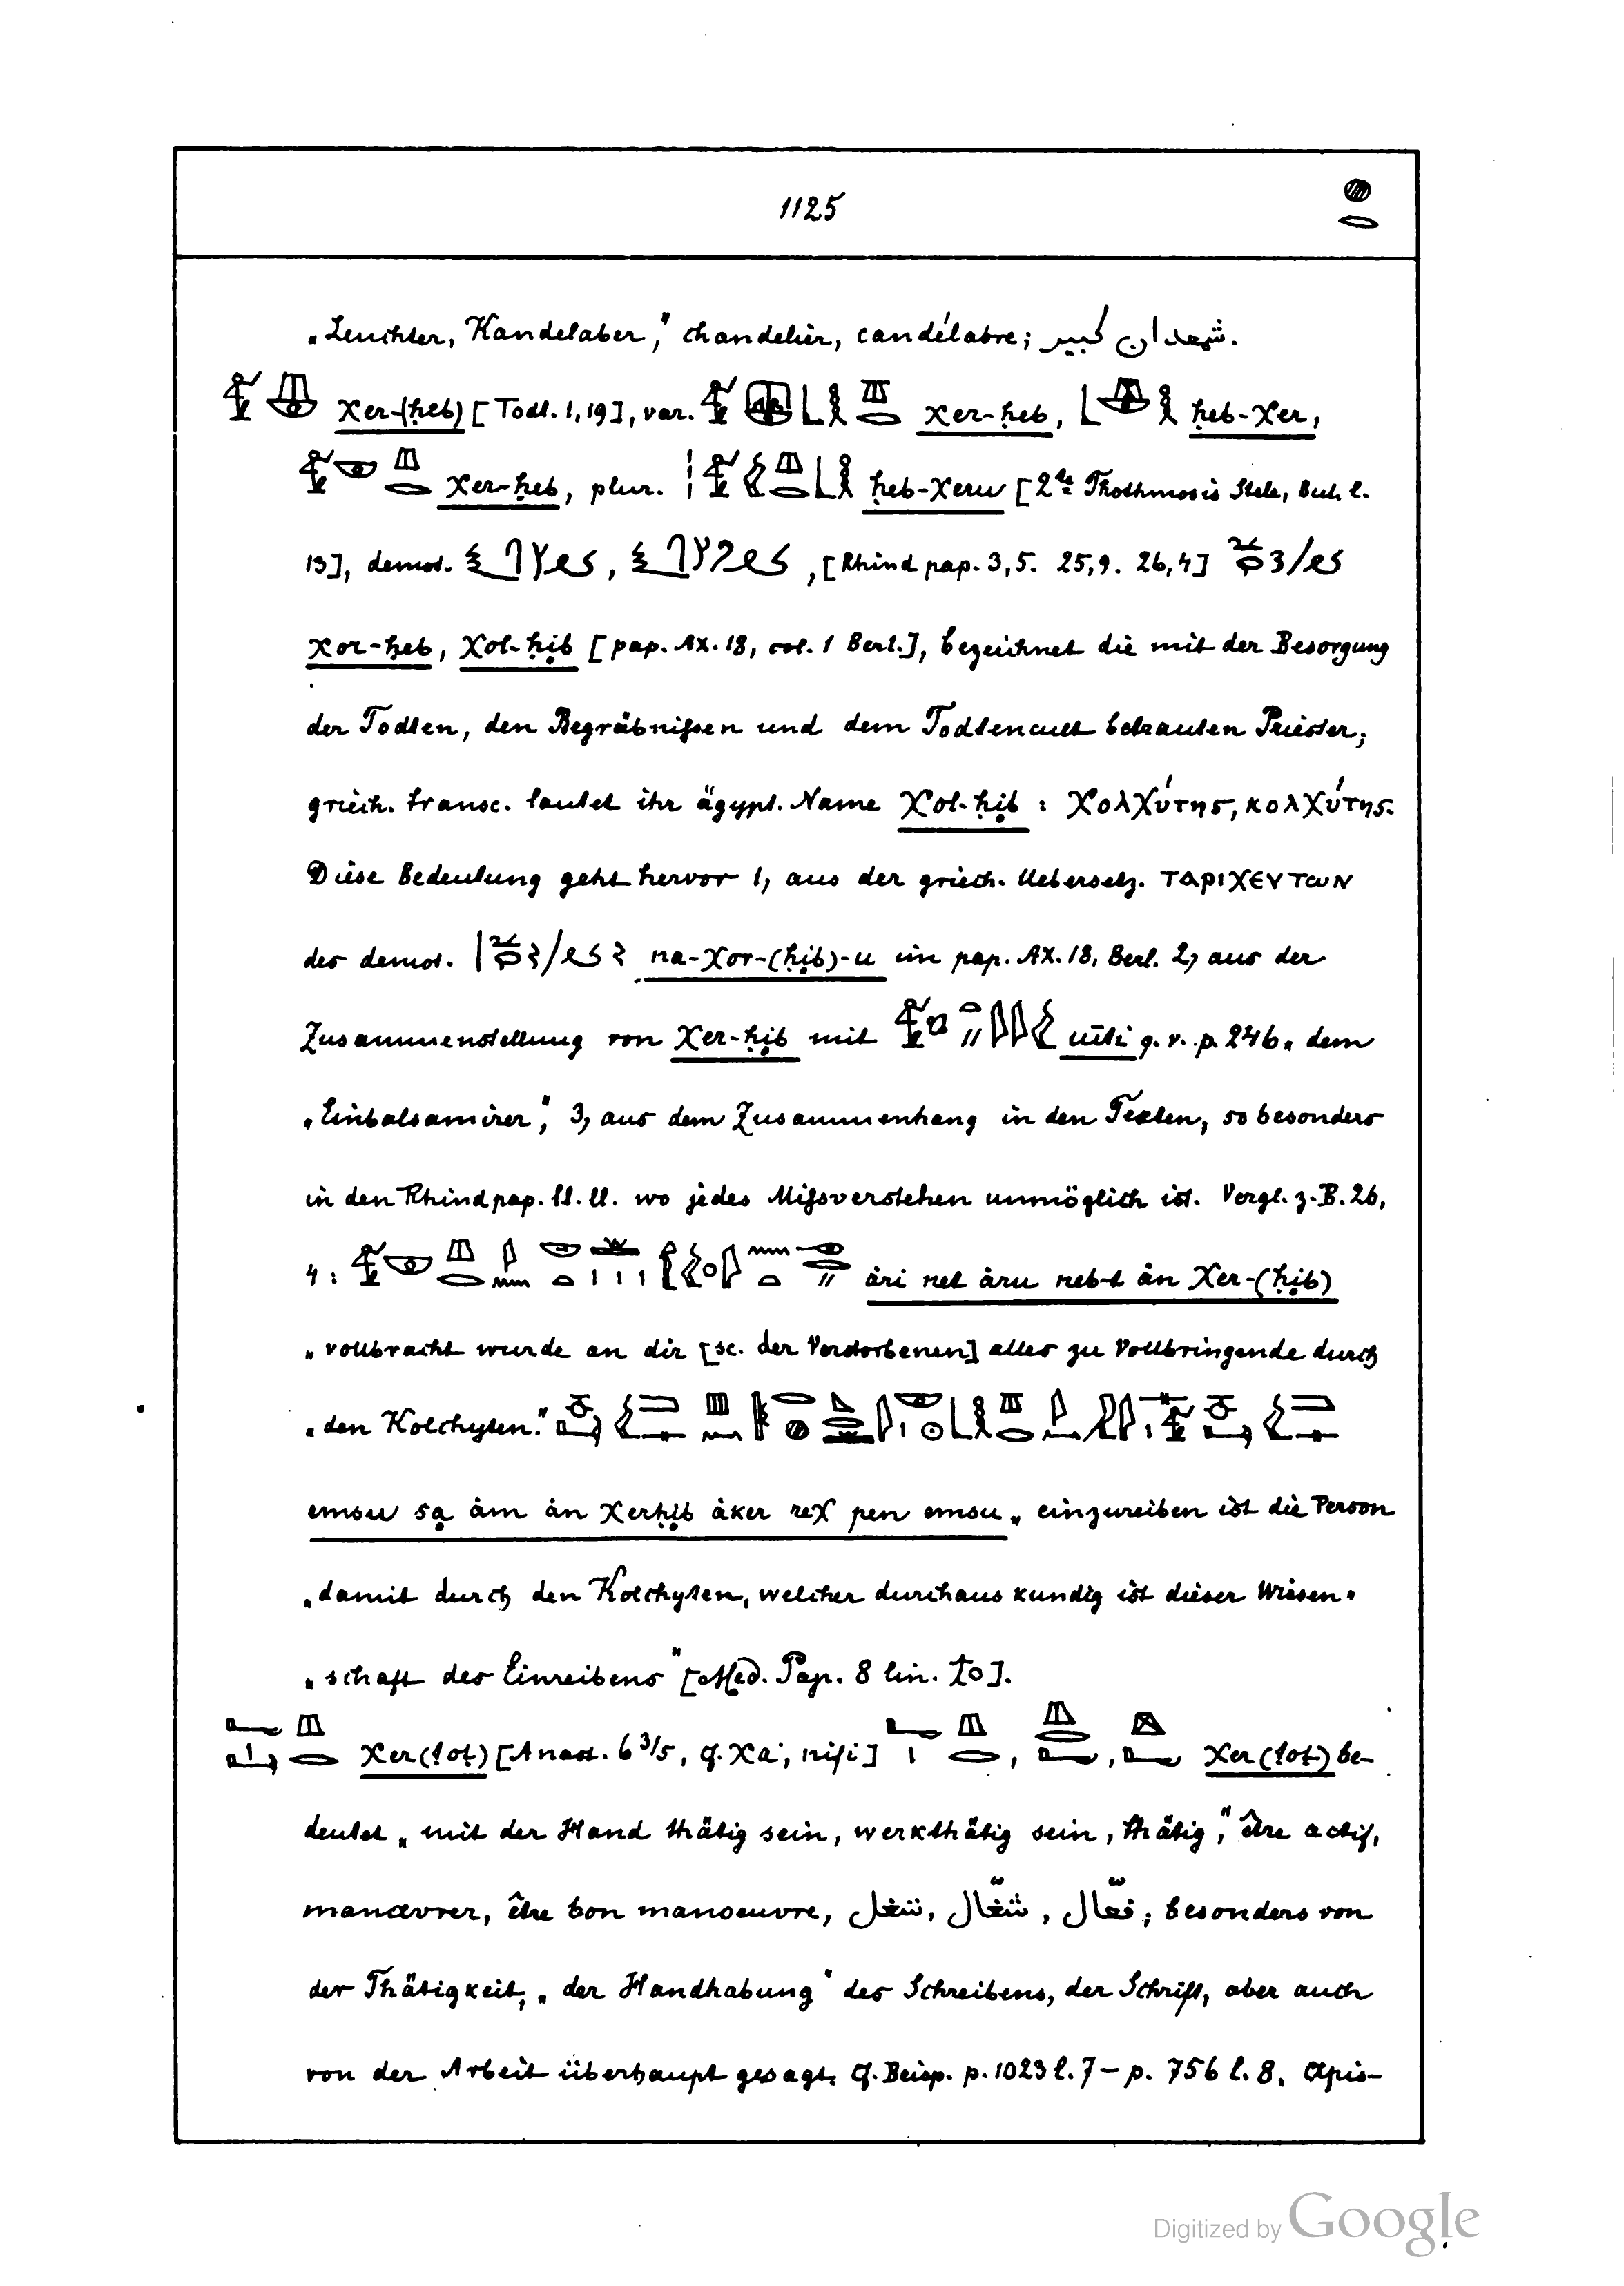 1125
„Leuchter, Kandelaber," chandelier, candélabre; شمعدان كبير.
χer-(ḥeb) [Todt. 1,19], var. χer-ḥeb, ḥeb-χer,
χer-ḥeb, plur. ḥeb-χeru [2te Thothmosis Stele, Bul. l.
13], demot. , [Rhind pap. 3,5. 25,9. 26,4]
χor-ḥeb, χol-ḥib [pap. Ax. 18, col. 1 Berl.], bezeichnet die mit der Besorgung
der Todten, den Begräbnißen und dem Todtencult betrauten Priester;
griech. transc. lautet ihr ägypt. Name χol-ḥib : χολχύτης, κολχύτης.
Diese Bedeutung geht hervor 1, aus der griech. Uebersetz. ΤΑΡΙΧΕΥΤωΝ
des demot. na-χor-(ḥib)-u im pap. Ax. 18, Berl. 2, aus der
Zusammenstellung von χer-ḥib mit q. v. p. 246. dem
„Einbalsamirer", 3, aus dem Zusammenhang in den Texten, so besonders
in den Rhind pap. ll. ll. wo jedes Mißverstehen unmöglich ist. Vergl. z. B. 26,
4: ȧri net ȧru neb-t ȧn χer-(ḥib)
„vollbracht wurde an dir [sc. der Verstorbenen] alles zu Vollbringende durch
„den Kolchyten."
emsu sa ȧm ȧn χerḥib ȧker reχ pen emsu „einzureiben ist die Person
„damit durch den Kolchyten, welcher durchaus kundig ist dieser Wissen-
„schaft des Einreibens" [Med. Pap. 8 lin. 10].
χer(tot) [Anast. 6 3/5, cf. χa, nifi] , , χer(tot) be-
deutet „mit der Hand thätig sein, werkthätig sein, thätig," être actif,
manœvrer, être bon manoeuvre, شغل, شغّال, فعّال; besonders von
der Thätigkeit, „der Handhabung" des Schreibens, der Schrift, aber auch
von der Arbeit überhaupt gesagt. cf. Beisp. p. 1023 l. 7 – p. 756 l. 8. Apis-
Digitized by Google